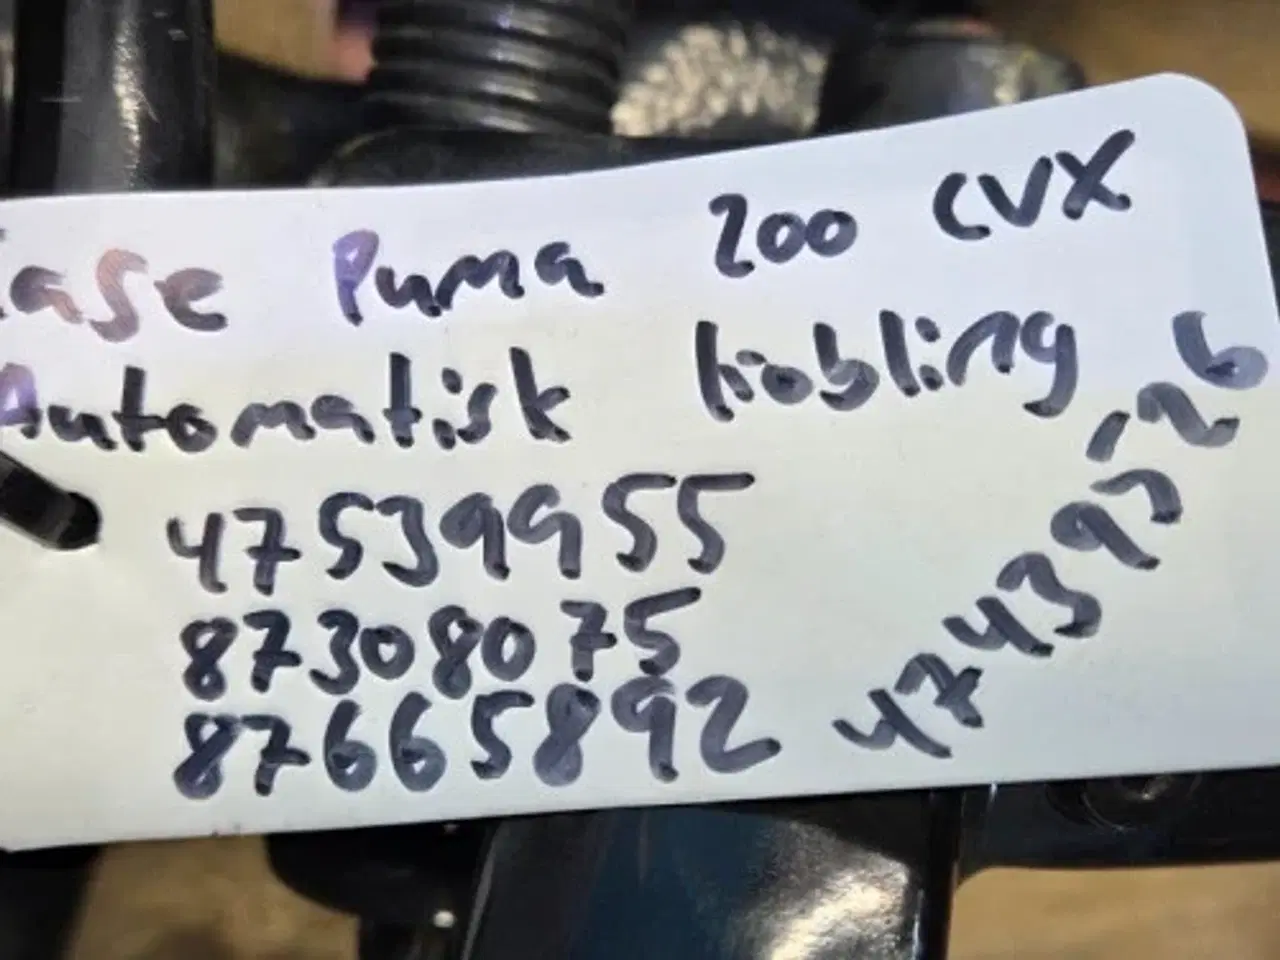 Case Puma 200 CVX
Automatisk kobling
47539955
87308075
87665892